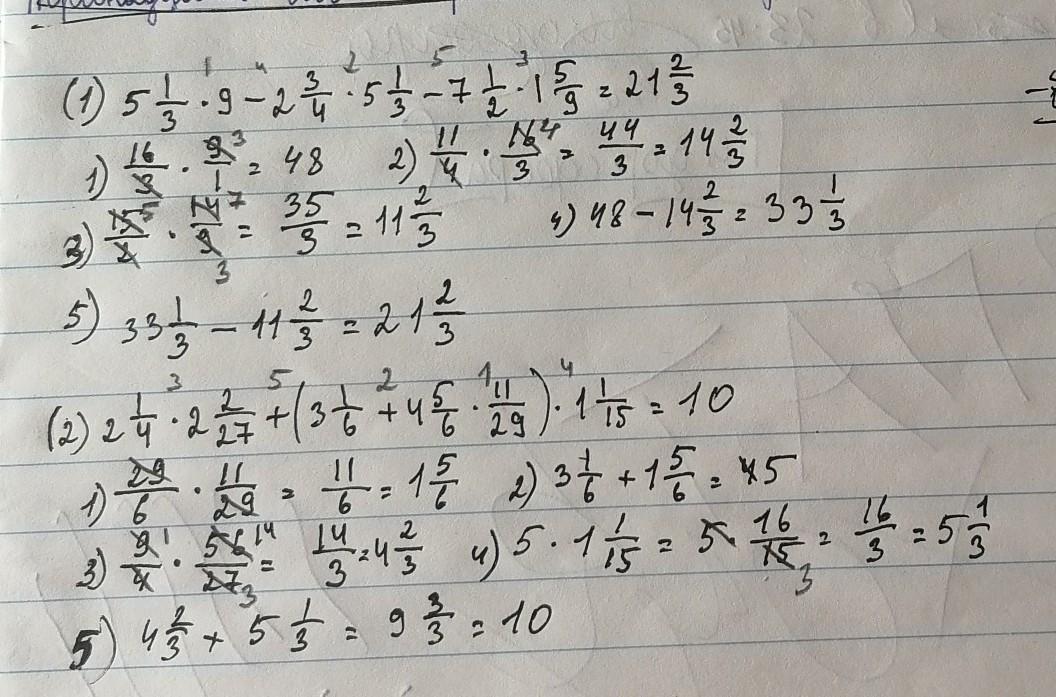 (1) 5 1/3 · 9 - 2 3/4 · 5 1/3 - 7 1/2 · 1 5/9 = 21 2/3
1) 16/3 · 9/1 3 = 48 2) 11/4 · 16/3 4 = 44/3 = 14 2/3
3) 15/2 5 · 14/9 7 3 = 35/3 = 11 2/3 4) 48 - 14 2/3 = 33 1/3
5) 33 1/3 - 11 2/3 = 21 2/3
(2) 2 1/4 · 2 2/27 + (3 1/6 + 4 5/6 · 11/29) · 1 1/15 = 10
1) 29/6 · 11/29 = 11/6 = 1 5/6 2) 3 1/6 + 1 5/6 = 5
3) 9/4 1 · 56/27 14 3 = 14/3 = 4 2/3 4) 5 · 1 1/15 = 5 · 16/15 3 = 16/3 = 5 1/3
5) 4 2/3 + 5 1/3 = 9 3/3 = 10